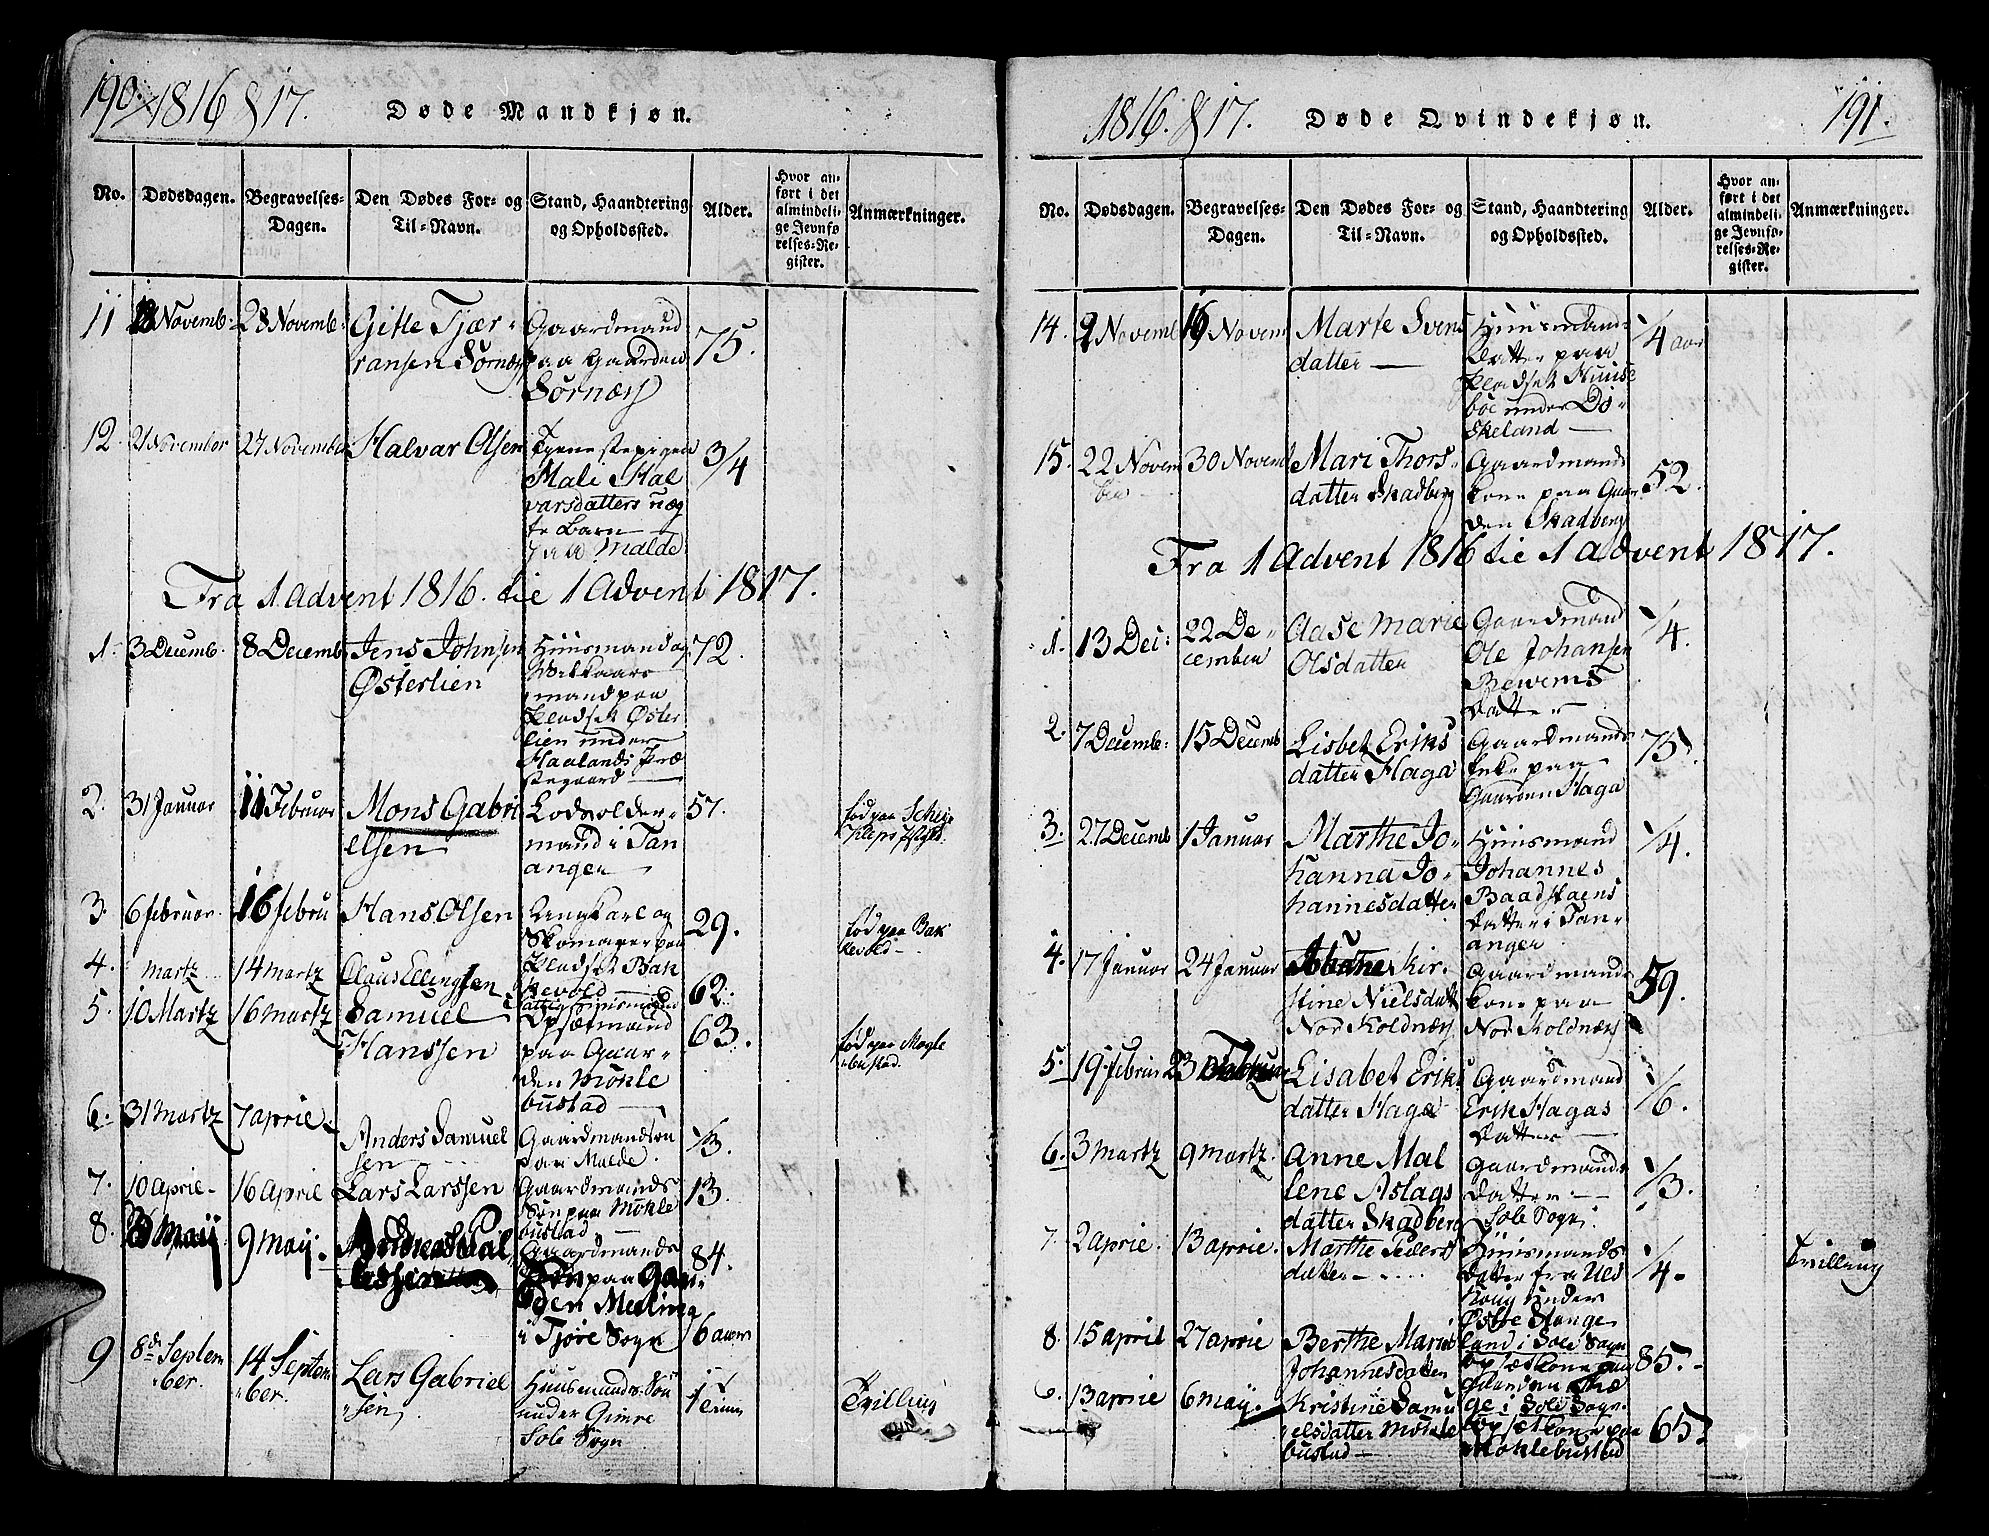 190. 1816 & 17. Døde Mandkjøn.
No. Dødsdagen. Begravelses-Dagen. Den Dødes For- og Til-Navn. Stand, Haandtering og Opholdssted. Alder. Hvor anført i det almindelige Jevnførelses-Register. Anmærkninger.
11 18 Novemb. 28 Novemb: Gitle Tjær-
ransen Sørnæs
Gaardmand
paa Gaarden
Sørnæs
75.
12. 21 November 27 November Halvar Olsen
Tjenestepigen
Mali Hal
varsdatters uæg
te Barn
paa Malde
3/4
Fra 1 Advent 1816. til 1 Advent 1817.
1. 3 Decemb. 8 Decemb. Jens Johnsen
Østerlien
Huusmand og
Vilkaars
mand paa
Pladset Øster
lien under
Haalands Præ
stegaard
72.
2. 31 Januar 11 Februar Mons Gabri
elsen
Lodsolder-
mand i Tan
anger
57.
fød paa
3. 6 februar. 16 febru Hans Olsen
Ungkarl og
Skomager paa
Pladset Bak
kevold
29.
fød paa Bak
kevold
4. martz 14 martz Claus Ellingsen
62.
5. 10 Martz 16 martz Samuel
Hanssen
Opsætmand
paa Gaar-
den Møkle
bustad
63.
fød paa Møgle
bustad.
6. 31 Martz 7 aprie Anders Samuel
sen
Gaardmandsøn
paa Malde.
1/3.
7. 10 aprie 16 aprie Lars Larssen
Gaardmands
Søn paa Møkle
bustad
13.
8. 3 Maij 9 maij. Andreas
Gaardmands
Søn paa Gaar
den Meling
i Tjøre Sogn
84.
9 8de Septem
ber.
14 Septem
ber.
Lars Gabriel
sen
Huusmands Søn
under Gimre
Sole Sogn
16 auer
Tvilling
1816. & 17. Døde Qvindekjøn. 191.
No. Dødsdagen. Begravelses-Dagen. Den Dødes For- og Til-Navn. Stand, Haandtering og Opholdssted. Alder. Hvor anført i det almindelige Jevnførelses-Register. Anmærkninger.
14. 9 Novemb 16 Novem Marte Svens
datter
Huusmands
Datter paa
Pladset Huuse
bøe under Dø-
skeland
1/4 aar
15. 22 Novem
ber
30 Novemb Mari Thors-
datter Skadberg
Gaardmands
kone paa Gaar
den Skadberg
52.
Fra 1 Advent 1816 til 1 Advent 1817.
1. 13 Dec: 22 De-
cember
Aase Marie
Olsdatter
Gaardmand
Ole Johansen
Rewems
Datter
1/4.
2. 7 Decemb: 15 Decemb Lisbet Eriks
datter Haga
Gaardmands
Enke paa
Gaarden Haga
75.
3. 27 Decemb 1 Januar Marthe Jo-
hanna Jo-
hannesdatter
Huusmand
Johannes
Baadstøens
Datter i Tan-
anger
1/4.
4. 17 Januar 24 Januar Johane Kir-
stine Nielsdatt
Nor Koldnæs
Gaardmands
kone paa
Nor Koldnæs
59.
5. 19 febru 23 Februar Lisabet Eriks
datter Haga
Gaardmand
Erik Hagas
Datter
1/6.
6. 3 martz 9 martz. Anne Mal
lene Aslags
datter Skadberg
Gaardmands
Datter
Sole Sogn.
1/3.
7. 2 aprie. 13 aprie. Marthe Peders
datter
Huusmands
Datter fra Uls
houg under
Østre Hauge
land i Sole Sogn
1/4
Tvilling
8. 15 april 27 aprie Berthe Maria
Johannesdatter
Opsæt Kone paa
Gaarden Ræ
ge i Sole Sogn.
85.
13 aprie 6 maij. Kristine Samu
elsdatter Møkle
bustad
Opsæt Kone paa
Møklebustad
65